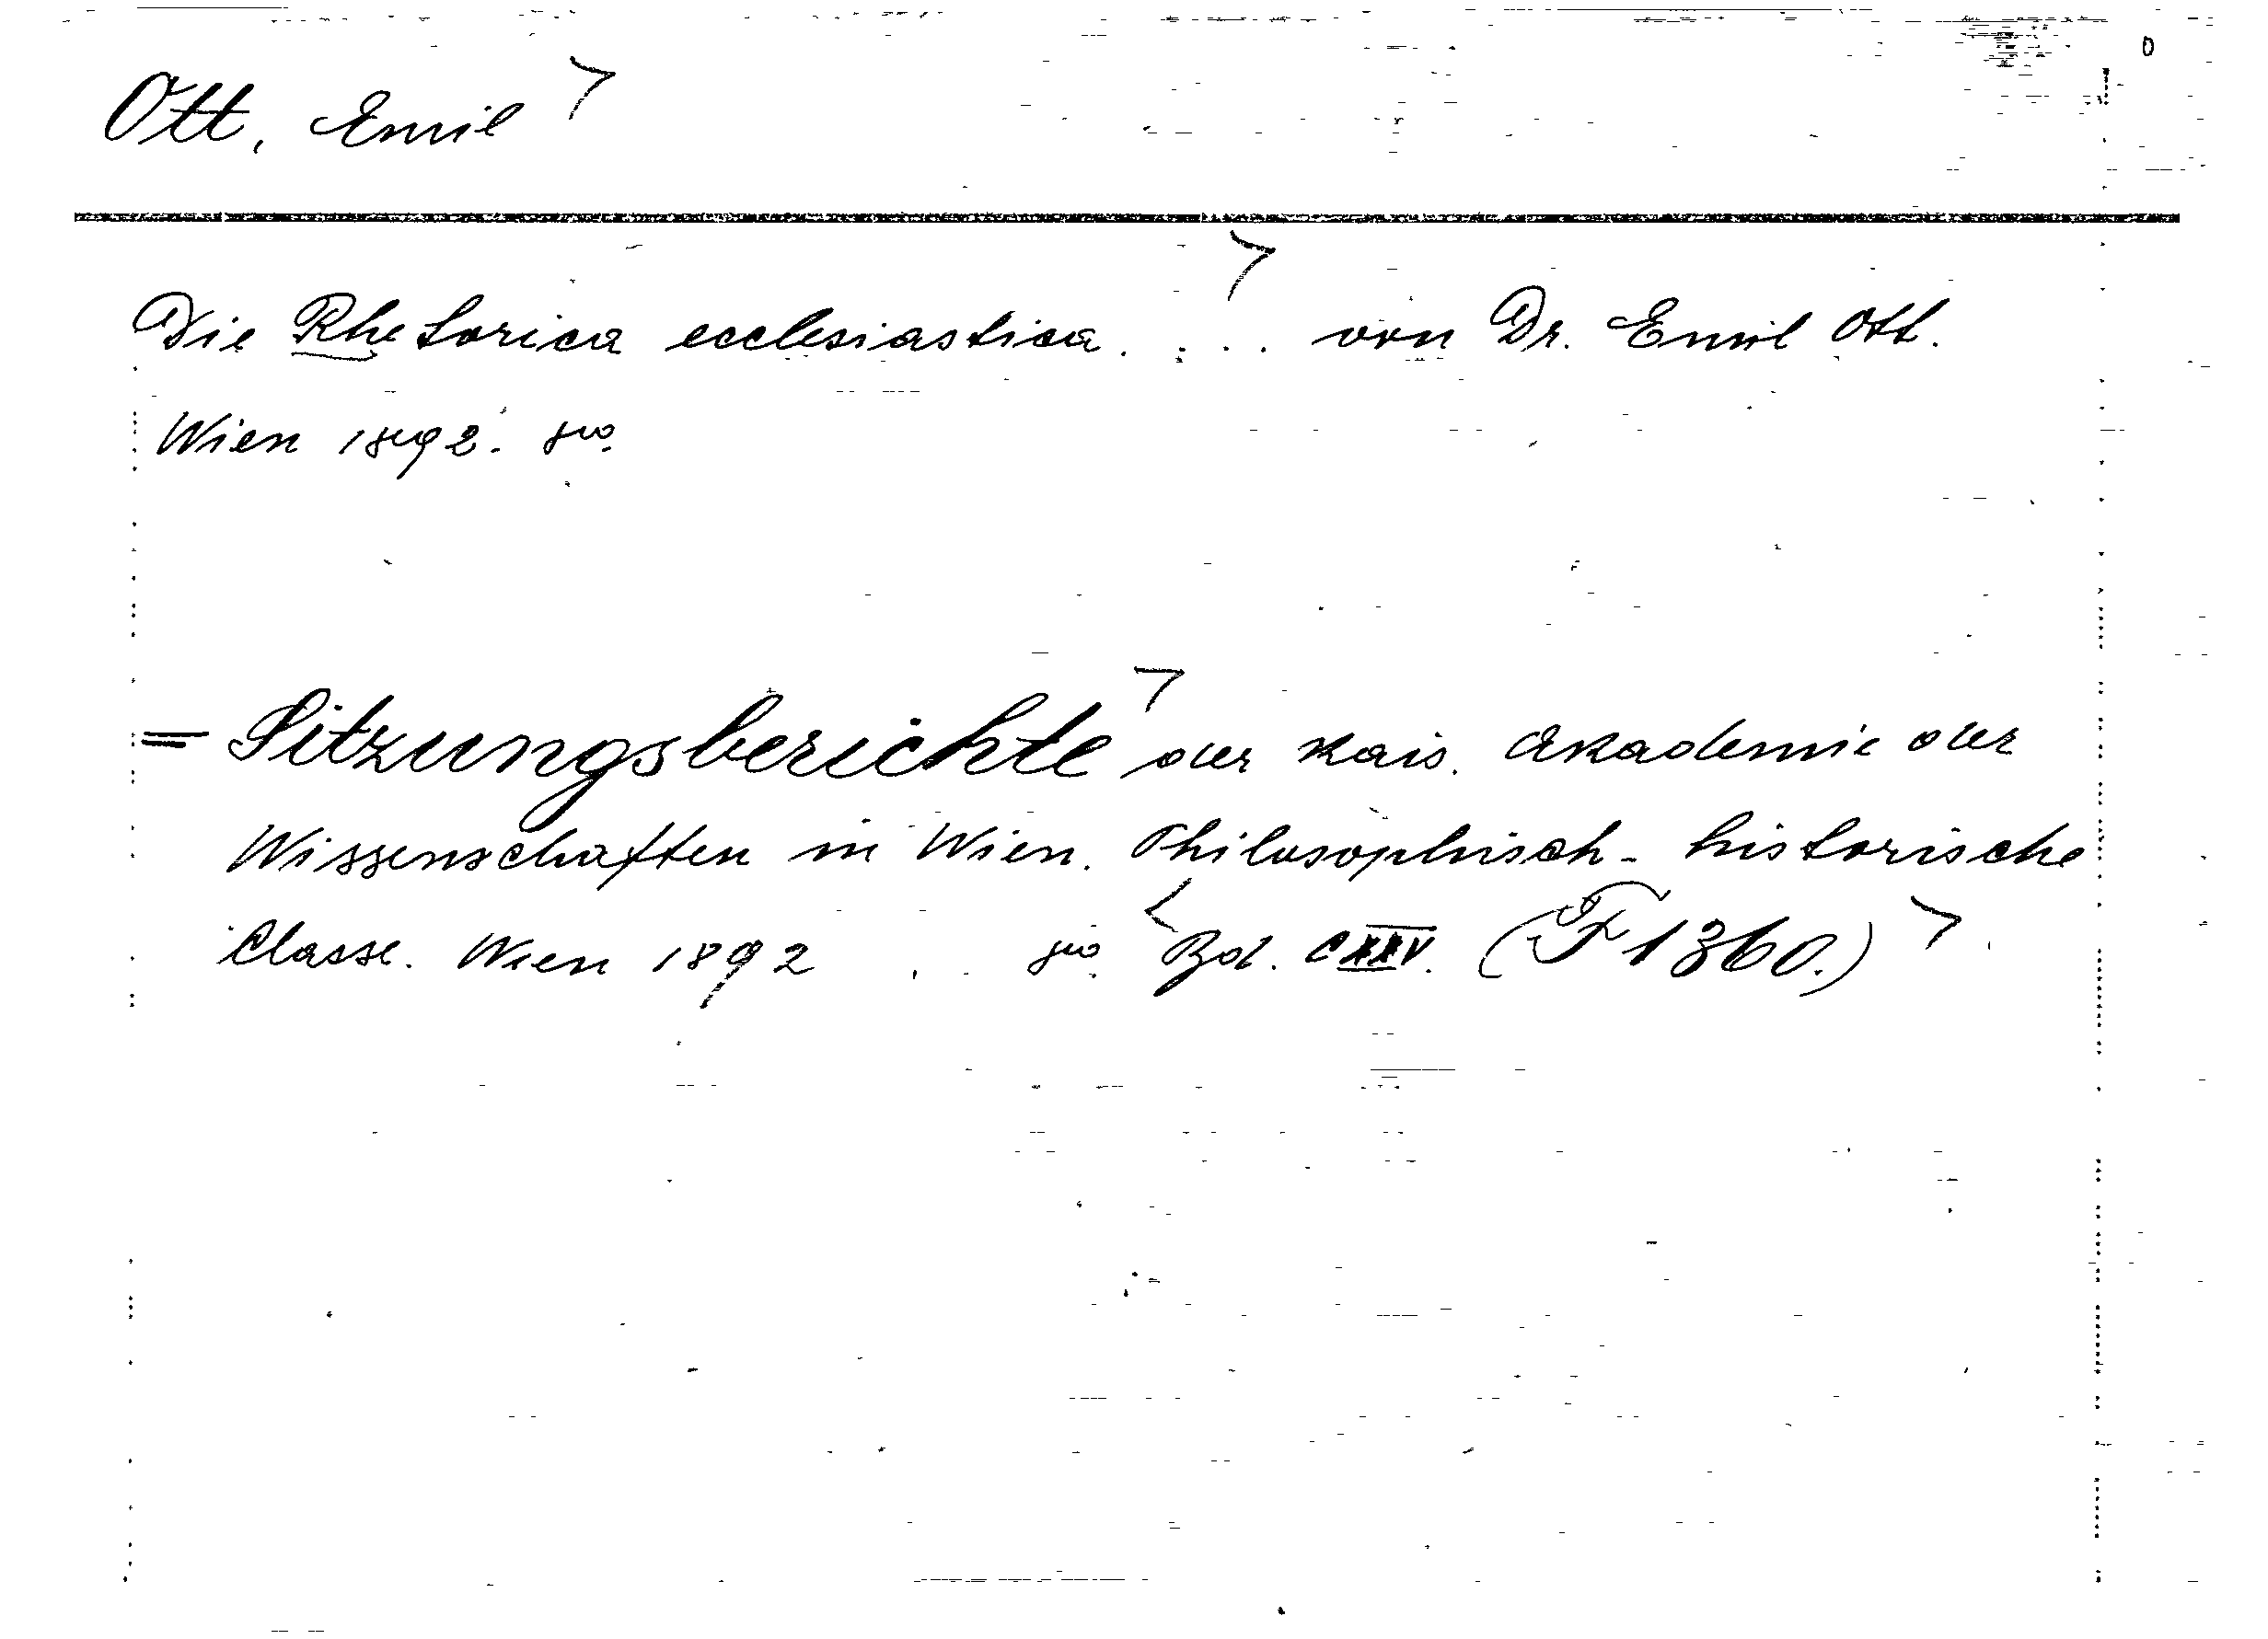 Ott, Emil
Die Rhetorica ecclesiastica. ... von Dr. Emil Ott.
Wien 1892. 8vo.
= Sitzungsberichte der Kais. Akademie der
Wissenschaften in Wien. Philosophisch-historische
Classe. Wien 1892 8vo Bd. CXXV. (F 1360.)